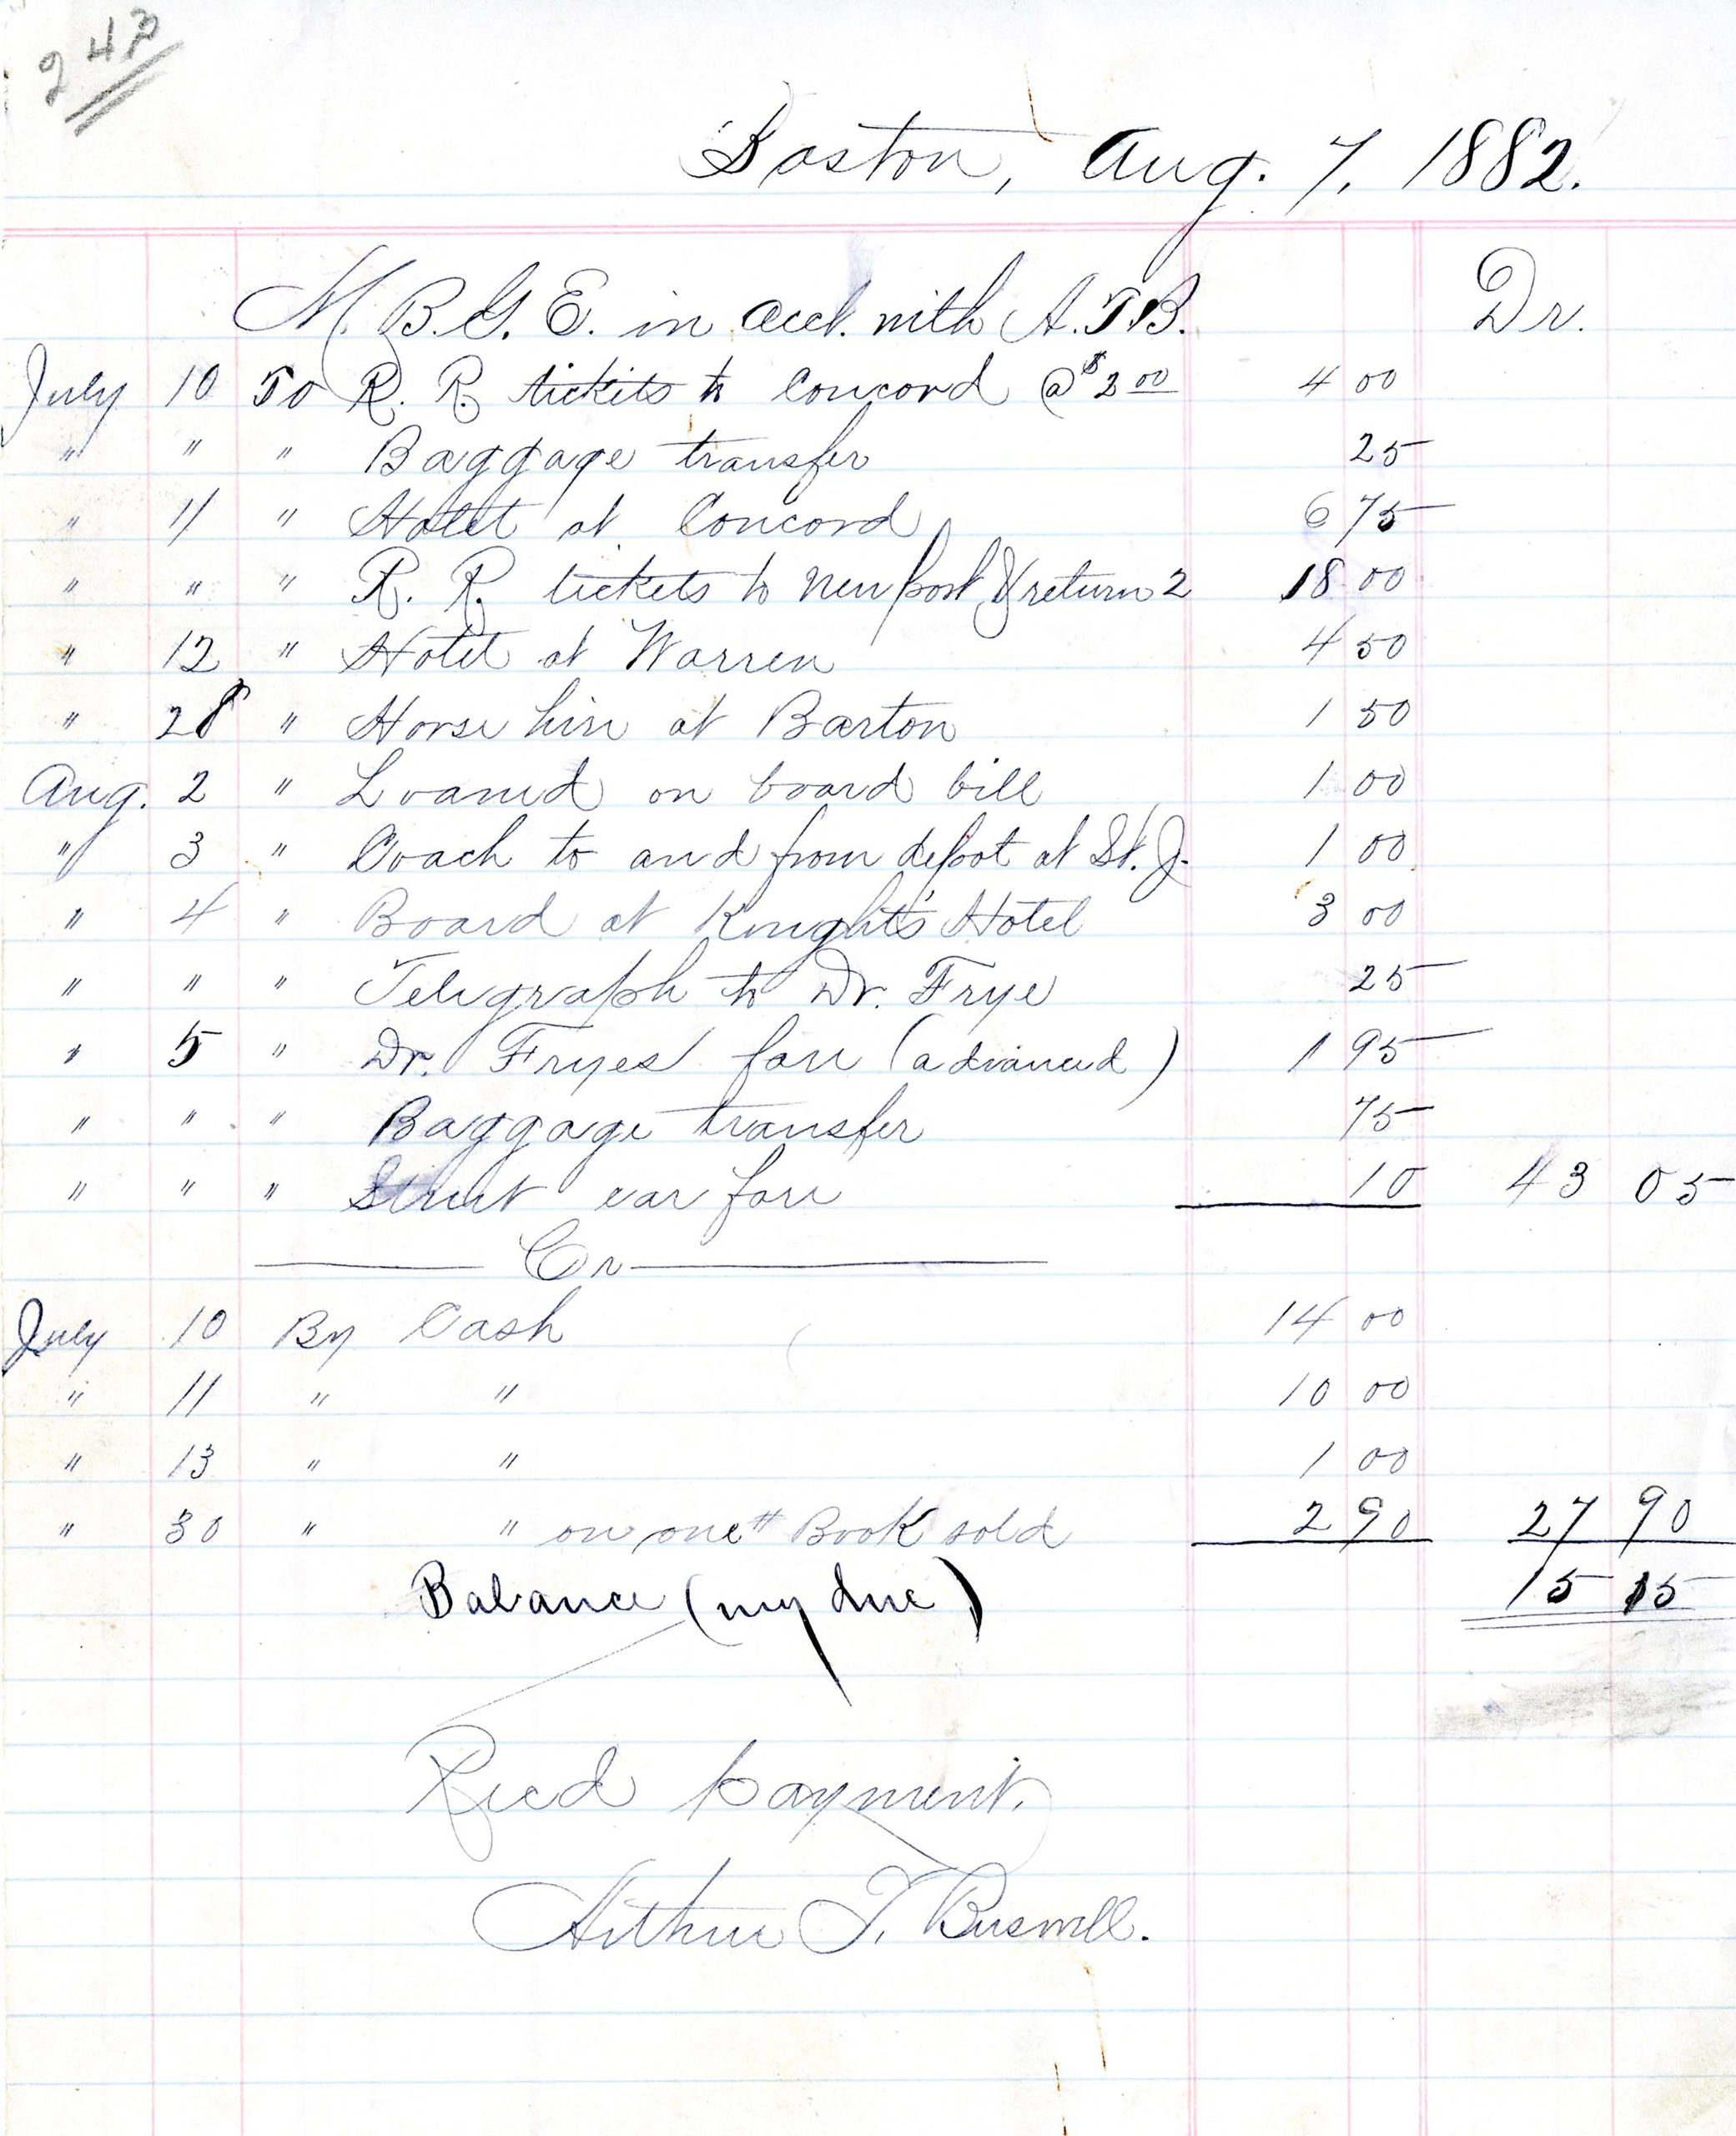 243
Boston, Aug. 7, 1882.
M. B. G. E. in acct. with A. T. B. Dr.
July 10 To R. R. tickets to Concord @ $2 00 4 00
" " " Baggage transfer 25
" 11 " Hotel at Concord 6 75
" " " R. R. tickets to Newport & return 2 18 00
" 12 " Hotel at Warren 4 50
" 28 " Horse hire at Barton 1 50
Aug. 2 " Loaned on board bill 1 00
" 3 " Coach to and from depot at St. J. 1 00
" 4 " Board at Knight's Hotel 3 00
" " " Telegraph to Dr. Frye 25
" 5 " Dr. Fryes' fare (advanced) 1 95
" " " Baggage transfer 75
" " " Street car fare 10 43 05
Cr
July 10 By Cash 14 00
" 11 " " 10 00
" 13 " " 1 00
" 30 " " on one Book sold 2 90 27 90
Balance (my due) 15 15
Recd payment.
Arthur T. Buswell.